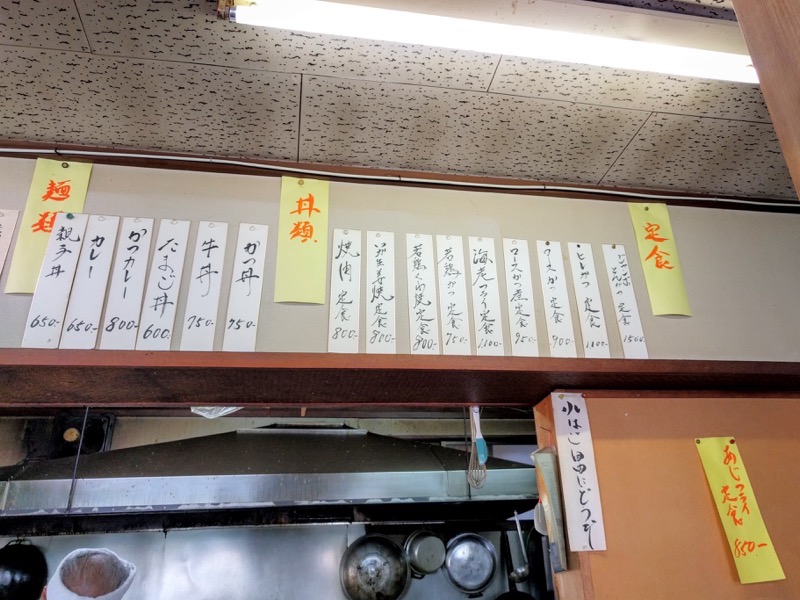 定食
ジャンボとんかつ定食 1500-
ヒレかつ定食 1100-
ロースかつ定食 900-
ロースかつ煮定食 950-
海老フライ定食 1,100-
若鶏かつ定食 750-
若鶏くわ焼定食 800-
生姜焼定食 800-
焼肉定食 800-
丼類
かつ丼 750-
牛丼 750-
たまご丼 600-
かつカレー 800-
カレー 650-
親子丼 650-
麺類
小はし
あじフライ
定食
850-